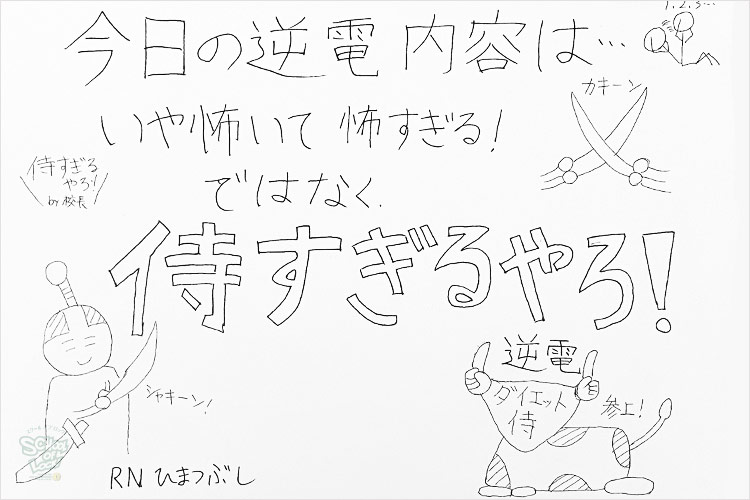 今日の逆電内容は…
1.2.3…
カキーン
いや怖いて 怖すぎる!
侍すぎる
やろ!
by 校長
ではなく、
侍すぎるやろ!
シャキーン!
逆電
ダイエット
侍
参上!
RN ひまつぶし